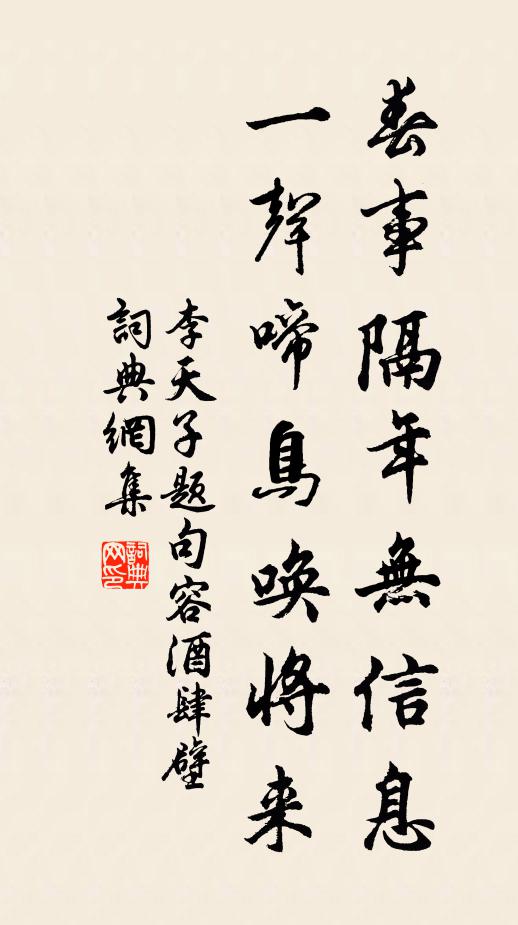 春事隔年無信息
一聲啼鳥唤將来
李天子题句容酒肆壁
詞典網集
詞典网印